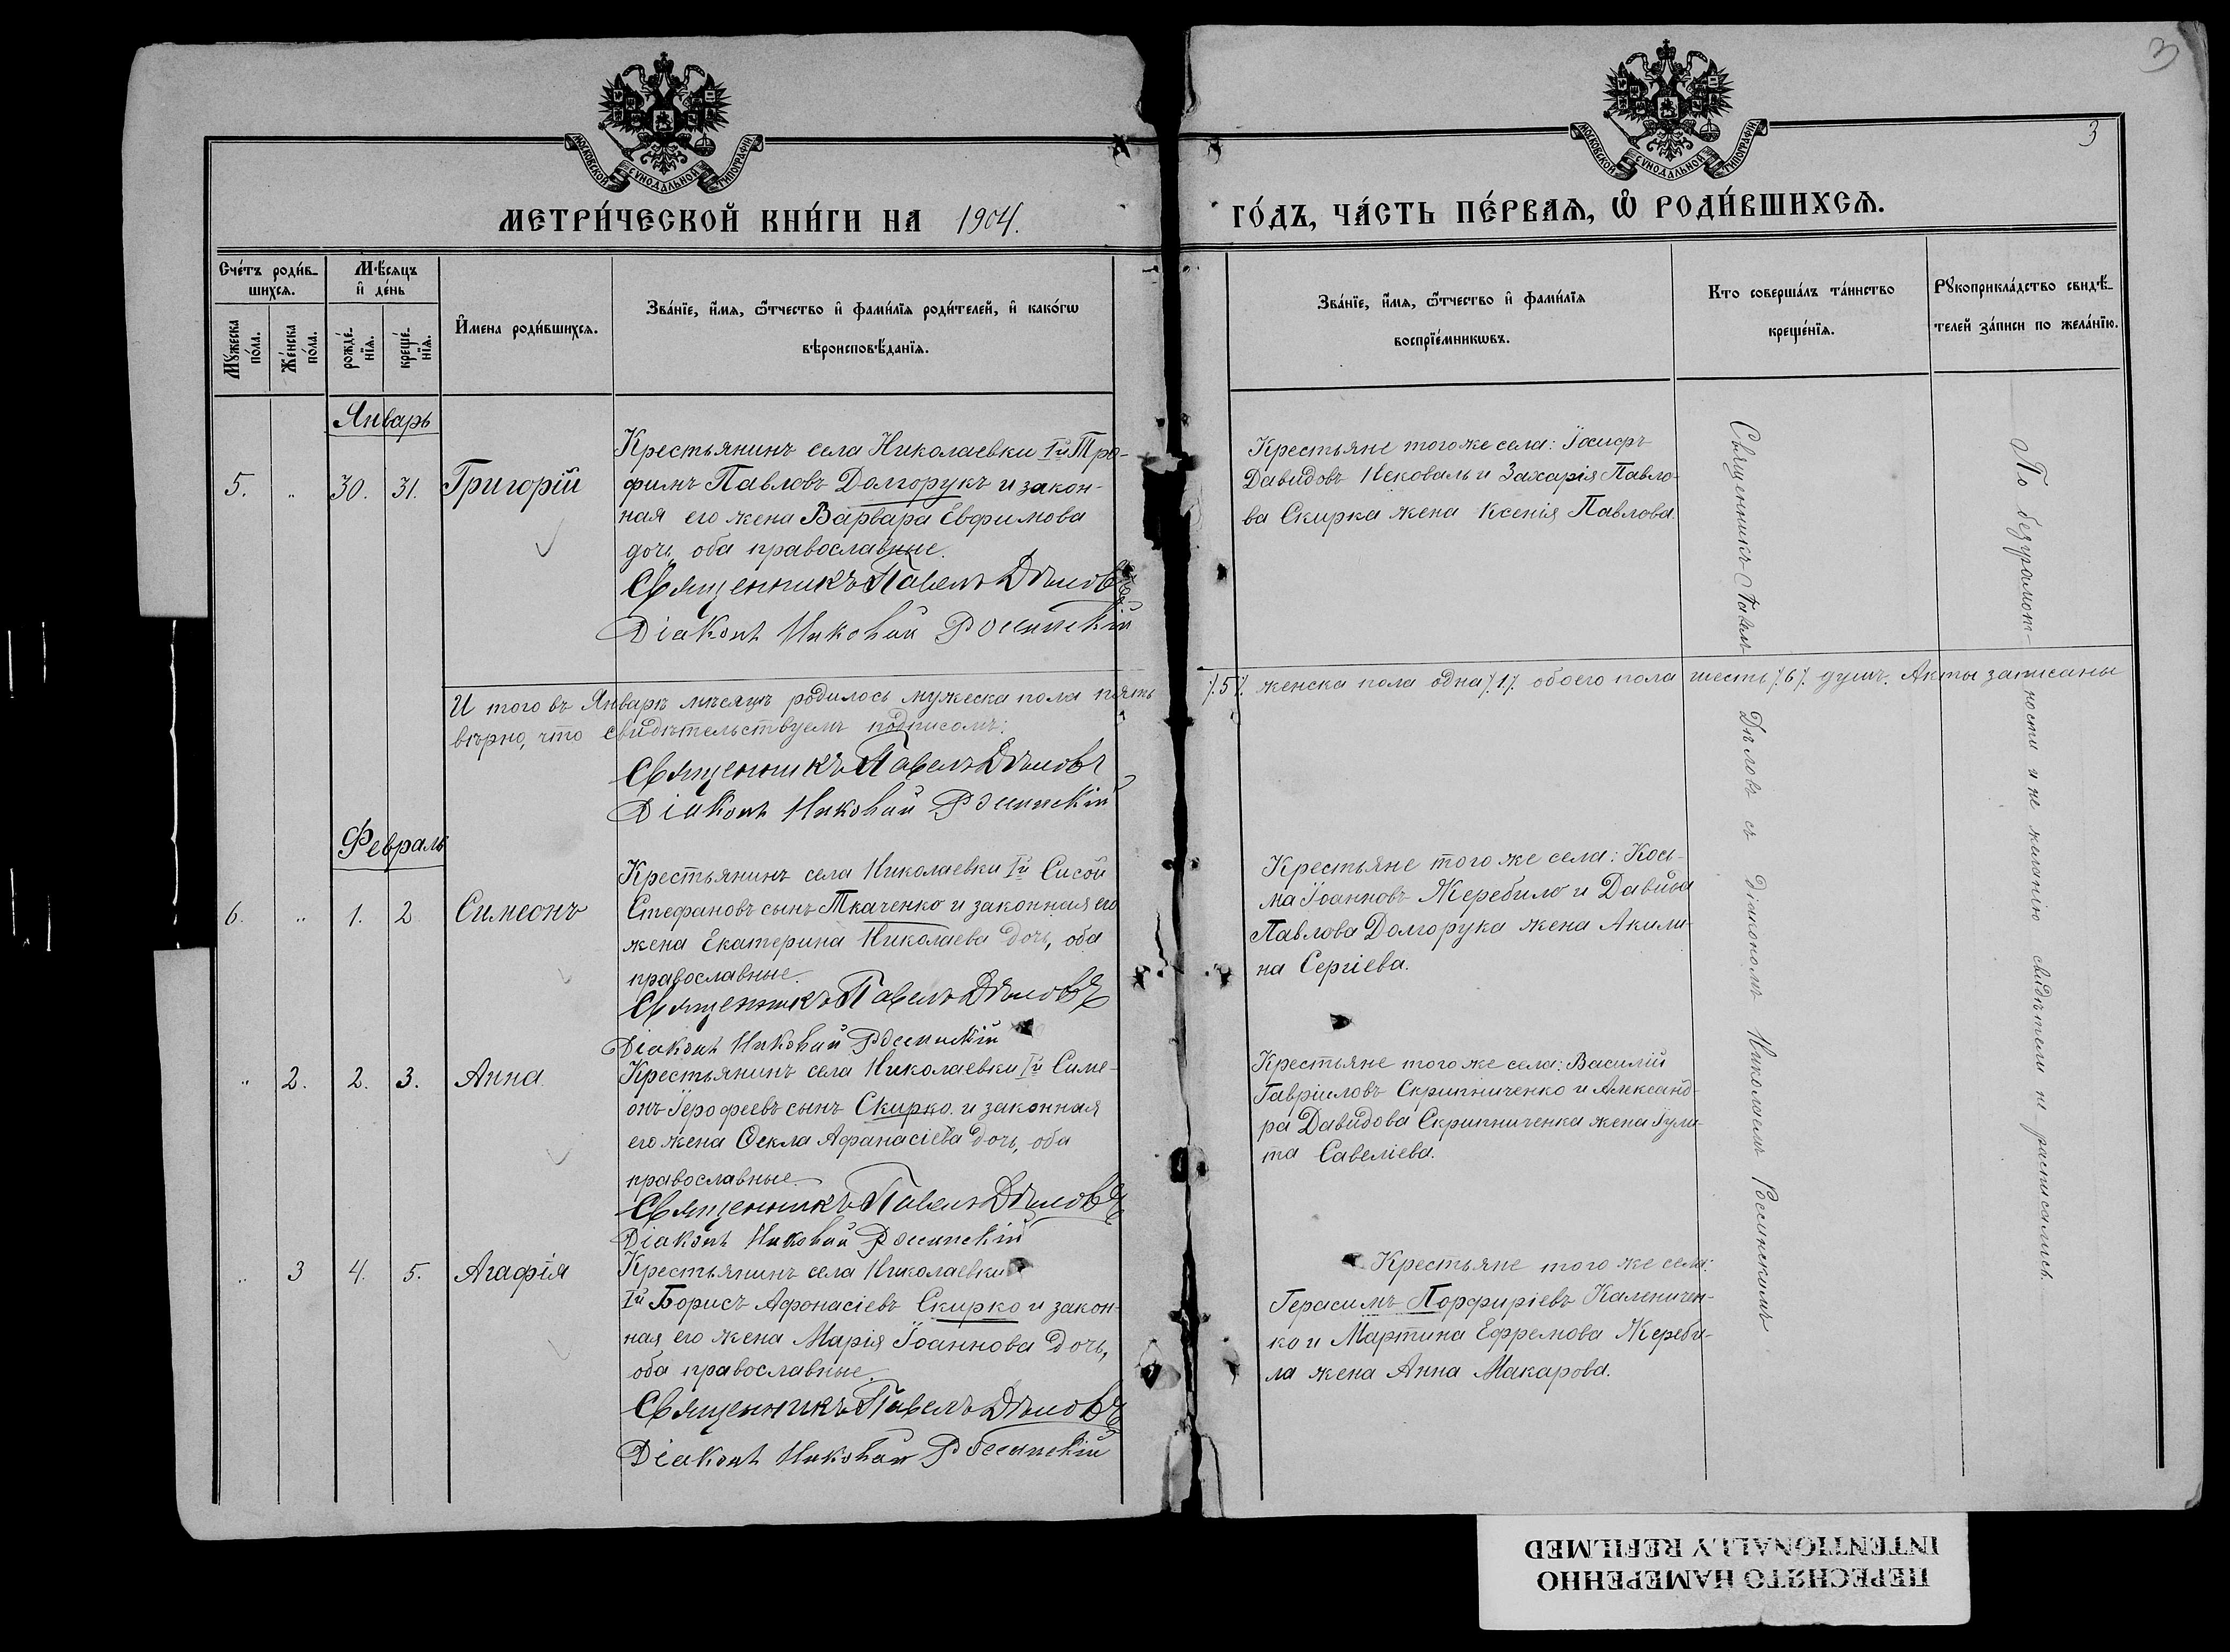 3
МОСКОВСКОЙ СѴНОДАЛЬНОЙ ТИПОГРАФІИ
МОСКОВСКОЙ СѴНОДАЛЬНОЙ ТИПОГРАФІИ
3
МЕТРИ́ЧЕСКОЙ КНИ́ГИ НА 1904.
ГО́ДЪ, ЧА́СТЬ ПЕ́РВАѦ, Ѽ РОДИ́ВШИХСѦ.
Сче́тъ роди́в-
шихсѧ.
Мꙋ́жеска по́ла.
Же́нска по́ла.
Мѣ́сяцъ
и҆ де́нь
рожде́нїѧ.
креще́нїѧ.
И҆мена роди́вшихсѧ.
Зва́нїе, и҆́мѧ, ѻ҆́тчество и҆ фами́лїѧ роди́телей, и҆ како́гѡ
вѣроисповѣ́данїѧ.
Зва́нїе, и҆́мѧ, ѻ҆́тчество и҆ фами́лїѧ
воспрїе́мникѡвъ.
Кто соверша́лъ та́инство
креще́нїѧ.
Рꙋкоприкла́дство свидѣ́-
телей за́писи по жела́нїю.
Январь
5. „ 30. 31. Григорій
Крестьянинъ села Николаевки Iй Тро-
фимъ Павловъ Долгорукъ и закон-
ная его жена Варвара Евфимова
дочь, оба православные.
Священникъ Павелъ Дѣловъ
Діаконъ Николай Росинскій
Крестьяне того же села: Іосифъ
Давидовъ Нековаль и Захарія Павло-
ва Скирка жена Ксенія Павлова.
И того въ Январѣ мѣсяцѣ родилось мужеска пола пять /.5/. женска пола одна /.1/. обоего пола шесть /.6/. душъ. Акты записаны
вѣрно, что свидѣтельствуемъ подписомъ:
Священникъ Павелъ Дѣловъ
Діаконъ Николай Росинскій
Февраль
6. „ 1. 2. Симеонъ
Крестьянинъ села Николаевки Iй Сисой
Стефановъ сынъ Ткаченко и законная его
жена Екатерина Николаева дочь, оба
православные.
Священникъ Павелъ Дѣловъ
Діаконъ Николай Росинскій
Крестьяне того же села: Кось-
ма Іоанновъ Жеребило и Давида
Павлова Долгорука жена Акили-
на Сергіева.
„ 2. 2. 3. Анна
Крестьянинъ села Николаевки Iй Симе-
онъ Іерофеевъ сынъ Скирко и законная
его жена Ѳекла Афанасіева дочь, оба
православные.
Священникъ Павелъ Дѣловъ
Діаконъ Николай Росинскій
Крестьяне того же села: Василій
Гавріиловъ Скрипниченко и Александ-
ра Давидова Скрипниченка жена Іули-
та Савеліева.
„ 3 4. 5. Агафія
Крестьянинъ села Николаевки
Iй Борисъ Афонасіевъ Скирко и закон-
ная его жена Марія Іоаннова дочь,
оба православные.
Священникъ Павелъ Дѣловъ
Діаконъ Николай Росинскій
Крестьяне того же села:
Герасимъ Порфиріевъ Каленичен-
ко и Мартина Ефремова Жереби-
ла жена Анна Макарова.
Священникъ Павелъ Дѣловъ съ діакономъ Николаемъ Росинскимъ
По безграмотности и не желанію свидѣтели не расписались.
ПЕРЕСНЯТО НАМЕРЕННО
INTENTIONALLY REFILMED